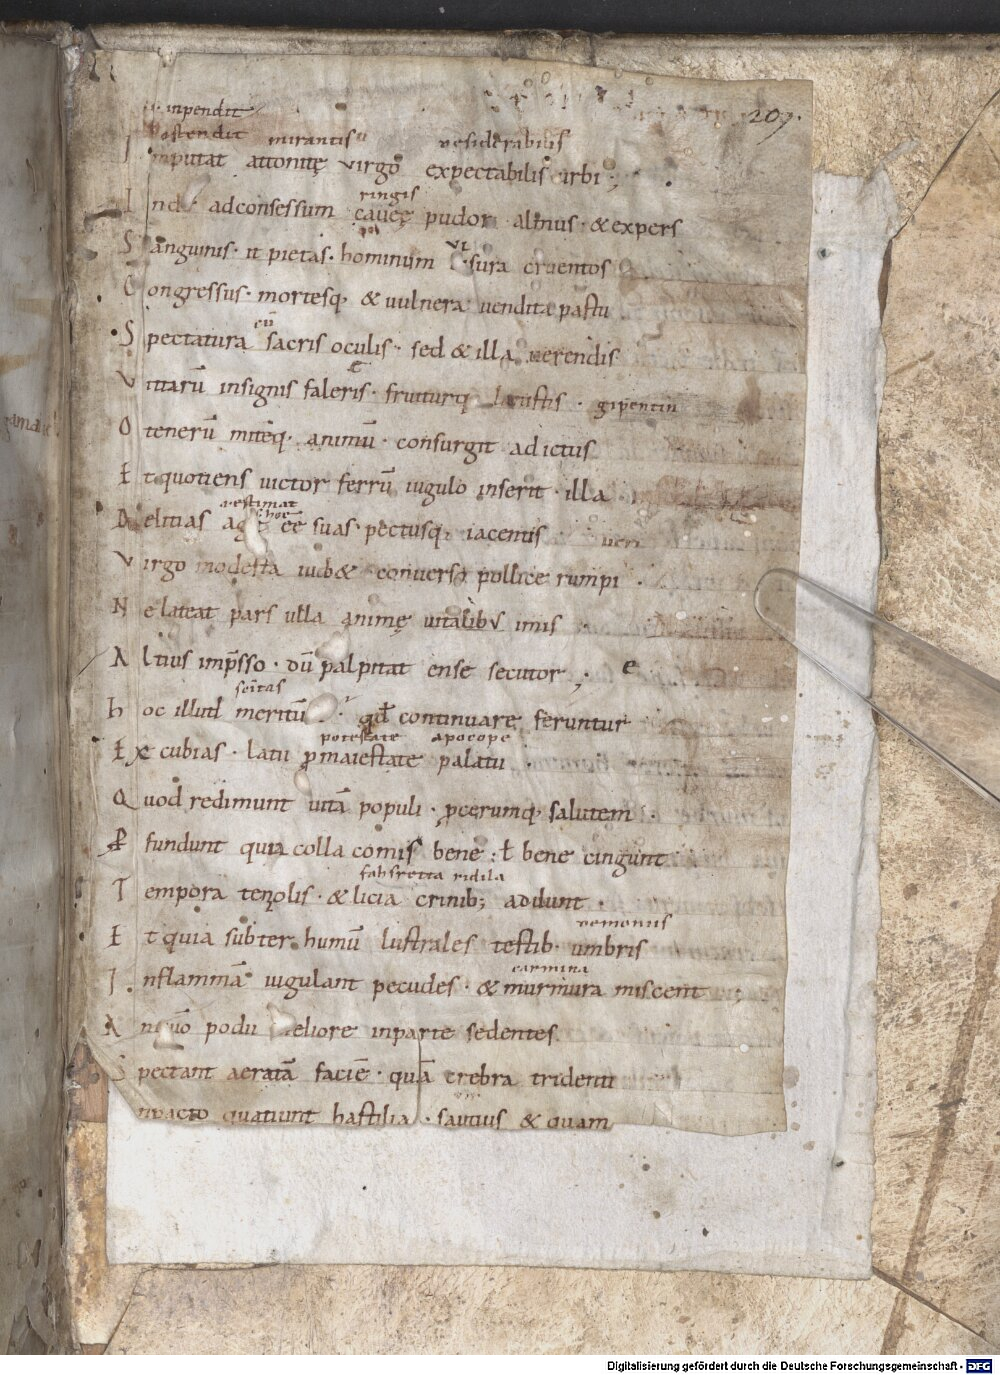 ·i· inpendit
ostendit mirantis desiderabilis 207.
Inputat attonitę virgo expectabilis urbi ;
ringis
Inde adconsessum caueę pudor almus · & expers
Sanguinis · it pietas · hominum uisura cruentos
Congressus · mortesq; & uulnera uendita pastu
cū
Spectatura sacris oculis · sed & illa uerendis
Vittarū insignis faleris · fruiturq; lanistis ·
O tenerū mitēq; animū · consurgit ad ictus
Et quotiens uictor ferrū iugulo inserit · illa
aestimat
Delitias ee suas · pectusq; iacentis
Virgo modesta iub& conuerso pollice rumpi ·
Ne lateat pars ulla animę uitalibus imis
Altius imp̄sso · dū palpitat ense secutor ; e
Hoc illud meritū qđ continuare feruntur
potestate apocope
Excubias · latii p maiestate palatii ·
Quod redimunt uitā populi · pcerumq; salutem ·
P fundunt quia colla comis bene · ł bene cingunt
Tempora tenolis · & licia crinib; addunt ·
demoniis
Et quia subter humū lustrales testib· umbris
carmina
In flammā iugulant pecudes · & murmura miscent
An podii meliore inparte sedentes
Spectant aeratā faciē · quā crebra tridenti
npacto quatiunt hastilia · saucius & quam
Digitalisierung gefördert durch die Deutsche Forschungsgemeinschaft · DFG